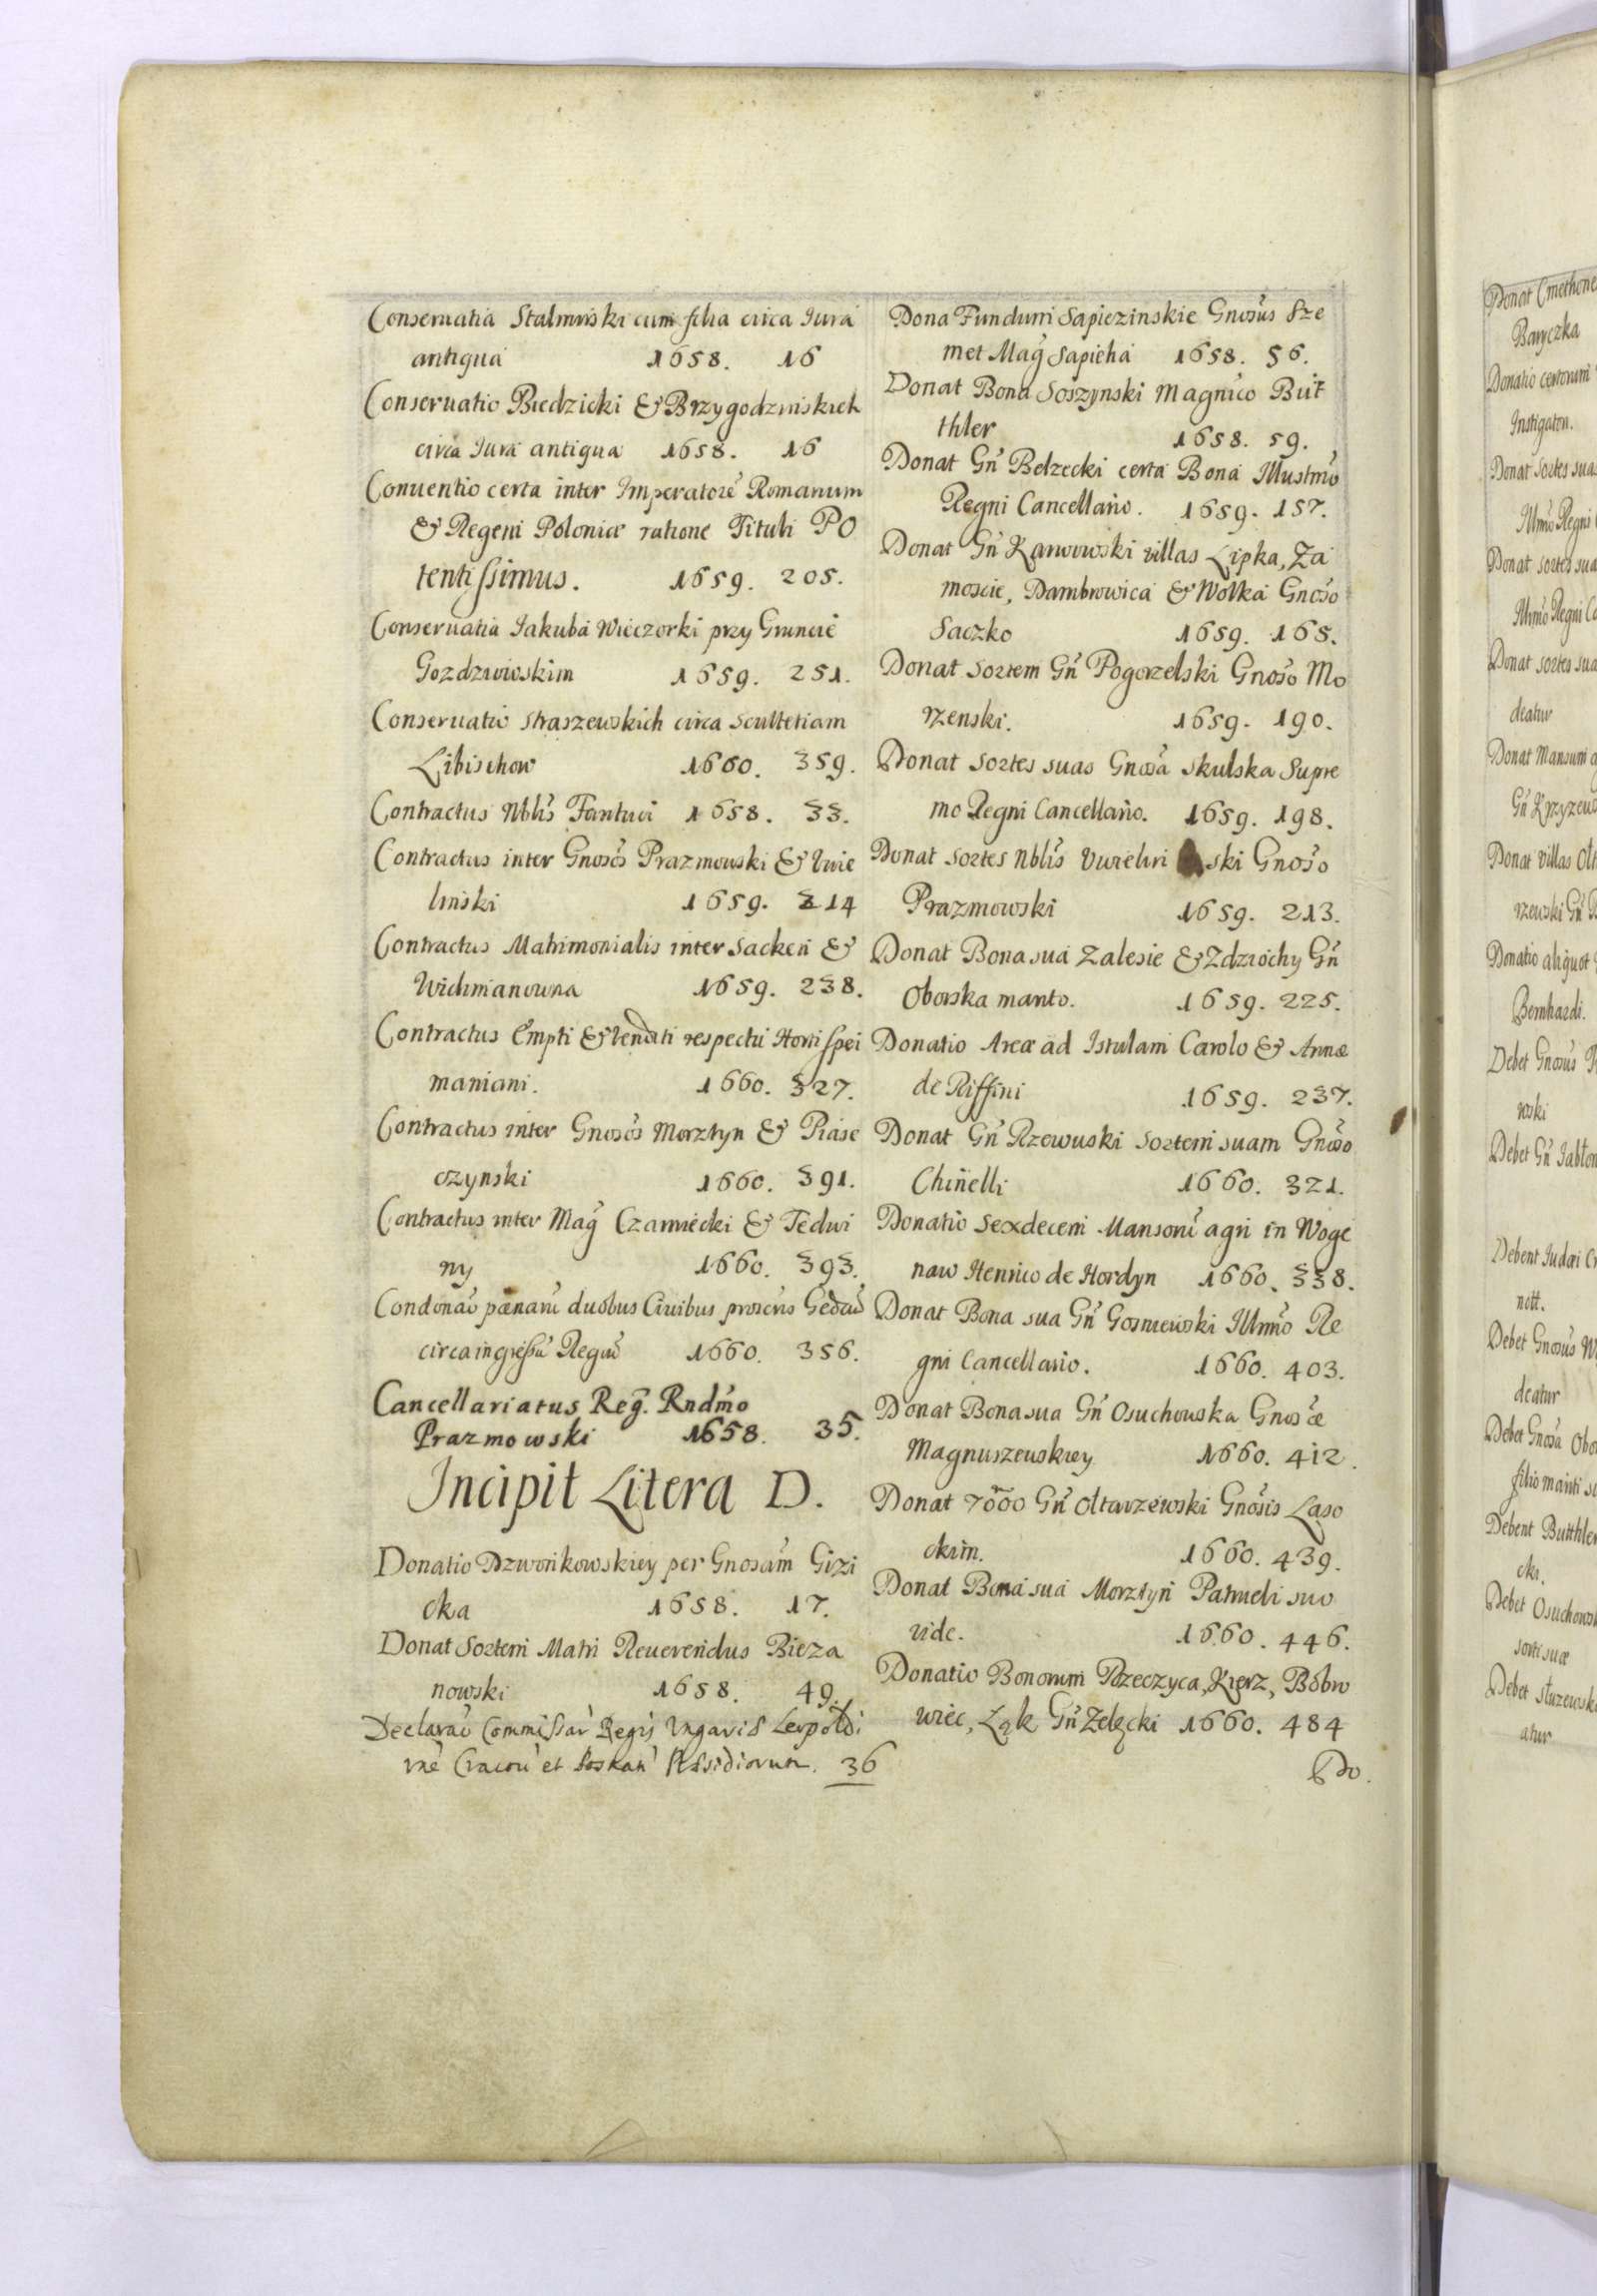 Conseruatia Stalminski cum filia circa Iura
antiqua 1658. 16
Conseruatio Biedzicki & Brzygodzinskich
circa Iura antiqua 1658. 16
Conuentio certa inter Imperatorē Romanum
& Regem Poloniæ ratione Tituli PO
tentissimus. 1659. 205.
Conseruatia Iakuba Wieczorki przy Gruncie
Gozdzwoskim 1659. 251.
Conseruatio Straszewskich circa Scultetiam
Libischow 1660. 359.
Contractus Nblis Fantuci 1658. 33.
Contractus inter Gnosos Prazmowski & Twie
linski 1659. 214
Contractus Matrimonialis inter Sacken &
Wichmanowna 1659. 238.
Contractus Empti & venditi respectu Horti Spei
maniani. 1660. 327.
Contractus inter Gnosos Morztyn & Piase
czynski 1660. 391.
Contractus inter Mag Czarniecki & Tedwi
ny 1660. 393.
Condonao pænarū duobus Ciuibus proscris Gedan
circa ingressū Regiū 1660. 356.
Cancellariatus Reg. Rndmo
Prazmowski 1658. 35.
Incipit Litera D.
Donatio Dzwonkowskiey per Gnosam Gizi
cka 1658. 17.
Donat Sortem Matri Reuerendus Bieza
nowski 1658. 49.
Declarao Commissar Regis Ungaris Leopoldi
Cracou et 36
Dona Fundum Sapiezinskie Gnosus Sze
met Mag Sapieha 1658. 56.
Donat Bona Soszynski Magnico But
thler 1658. 59.
Donat Gn Belzecki certa Bona Illustmo
Regni Cancellario. 1659. 157.
Donat Gn Karwowski villas Lipka, Za
moscie, Dambrowica & Wolka Gnoso
Saczko 1659. 165.
Donat Sortem Gn Pogorzelski Gnoso Mo
rzenski. 1659. 190.
Donat Sortes suas Gnosa Skulska Supre
mo Regni Cancellario. 1659. 198.
Donat Sortes Nblis ski Gnoso
Prazmowski 1659. 213.
Donat Bona sua Zalesie & Zdziochy Gn
Oborska marito. 1659. 225.
Donatio Areæ ad Istulam Carolo & Annæ
de Riffini 1659. 237.
Donat Gn Rzewuski Sortem suam Gnoso
Chinelli 1660. 321.
Donatio Sexdecem Mansorū agri in Woge
naw Henrico de Hordyn 1660. 338.
Donat Bona sua Gn Gosniewski Illmo Re
gni Cancellario. 1660. 403.
Donat Bona sua Gn Osuchowska Gnosæ
Magnuszewskiey 1660. 412.
Donat 7000 Gn Oltarzewski Gnosis Laso
ckim. 1660. 439.
Donat Bona sua Morztyn Patrueli suo
vide. 1660. 446.
Donatio Bonorum Rzeczyca, Kierz, Bobro
wiec, Łąk Gn Zelęcki 1660. 484
Do.
Donat Cmethone
Baryczka
Donatio certorum
Instigatori.
Donat Sortes suas
Illmo Regni
Donat sortes sua
Illmo Regni Ca
Donat sortes sua
deatur
Donat Mansum a
Gn Krzyzews
Donat villas Olt
rzewski Gn
Donatio aliquot
Bernhardi.
Debet Gnosus
wski
Debet Gn Jablon
Debent Iudæi Cr
nott.
Debet Gnosus W
deatur
Debet Gnosa Obo
filio mariti su
Debent Butthler
cki.
Debet Osuchows
sorti suæ
Debet Sluzewski
atur